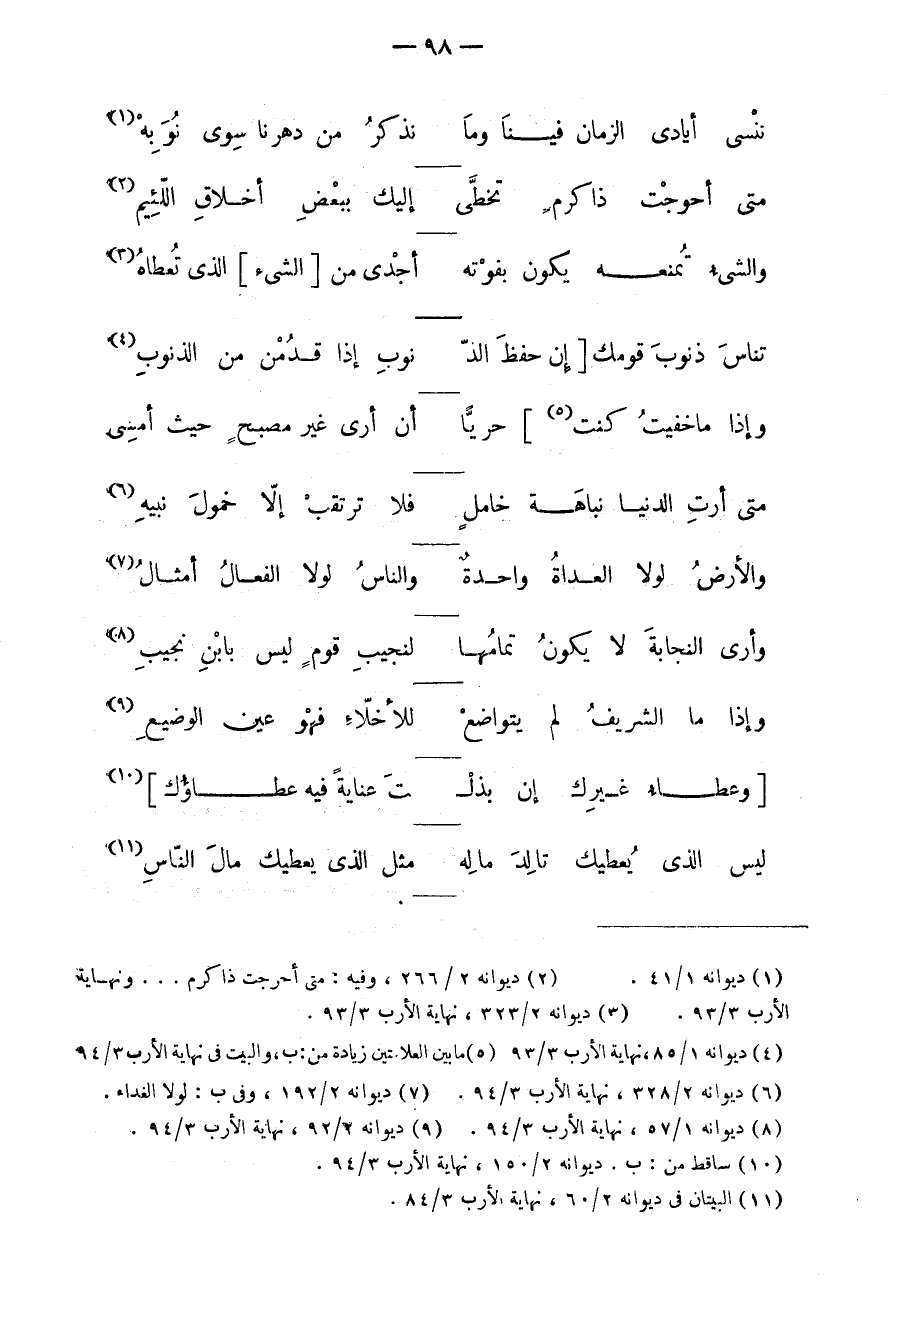 — ٩٨ —
ننْسى أيادى الزمان فينَا ومَا نذكرُ من دهرنا سِوى نُوَبِهْ (١)
متى أحوجْت ذاكرمٍ تخطَّى إليك ببعْضِ أخلاقِ اللّئِيم (٢)
والشىء تُمنعه يكون بفوْته أجْدى من [ الشىء ] الذى تُعطاهُ (٣)
تناسَ ذنوبَ قومك [ إن حفظَ الذّ نوبِ إذا قدُمْن من الذنوبِ (٤)
وإذا ماخفيتُ كنت (٥) ] حريًّا أن أرى غير مصبحٍ حيث أمسِى
متى أرتِ الدنيا نباهَة خاملٍ فلا ترتقبْ إلّا خمولَ نبيهِ (٦)
والأرضُ لولا العداةُ واحدةٌ والناسُ لولا الفعالُ أمثالُ (٧)
وأرى النجابةَ لا يكونُ تمامُها لنجيبِ قومٍ ليس بابْنِ نجيبِ (٨)
وإذا ما الشريفُ لم يتواضعْ للأخلّاءِ فهْو عين الوضيعِ (٩)
[ وعطاء غيرِك إن بذلْـ ـتَ عنايةً فيه عطاؤك ] (١٠)
ليس الذى يُعطيك تالِدَ مالِه مثل الذى يعطيك مالَ النّاسِ (١١)
(١) ديوانه ٤١/١ . (٢) ديوانه ٢٦٦/٢ ، وفيه : متى أحرجت ذاكرم . . . ونهاية
الأرب ٩٣/٣ . (٣) ديوانه ٣٢٣/٢ ، نهاية الأرب ٩٣/٣ .
(٤) ديوانه ٨٥/١ ،نهاية الأرب ٩٣/٣ (٥) مابين العلامتين زيادة من : ب ، والبيت فى نهاية الأرب ٩٤/٣
(٦) ديوانه ٣٢٨/٢ ، نهاية الأرب ٩٤/٣ . (٧) ديوانه ١٩٢/٢ ، وفى ب : لولا الغداء .
(٨) ديوانه ٥٧/١ ، نهاية الأرب ٩٤/٣ . (٩) ديوانه ٩٢/٢ ، نهاية الأرب ٩٤/٣ .
(١٠) ساقط من : ب . ديوانه ١٥٠/٢ ، نهاية الأرب ٩٤/٣ .
(١١) البيتان فى ديوانه ٦٠/٢ ، نهاية الأرب ٨٤/٣ .